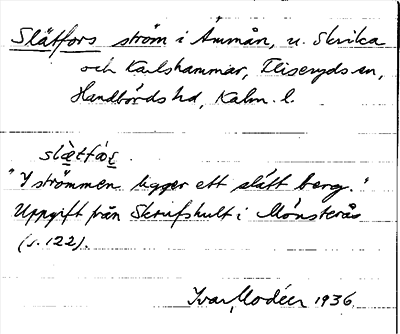 Slätfors ström i Åmmån, n. Skrika
och Karlshammar, Fliseryds sn,
Handbörds hd, Kalm. l.
slä̀tfà̱ș.
"I strömmen ligger ett slätt berg."
Uppgift från Skrufshult i Mönsterås
(s. 122).
Ivar Modéer 1936